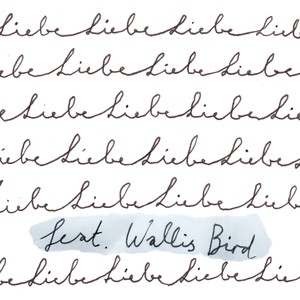 Liebe Liebe Liebe Liebe
Liebe Liebe Liebe Liebe
Liebe Liebe Liebe Liebe
Liebe Liebe Liebe Liebe
Liebe Liebe Liebe Liebe
feat. Wallis Bird
Liebe Liebe Liebe Liebe Liebe